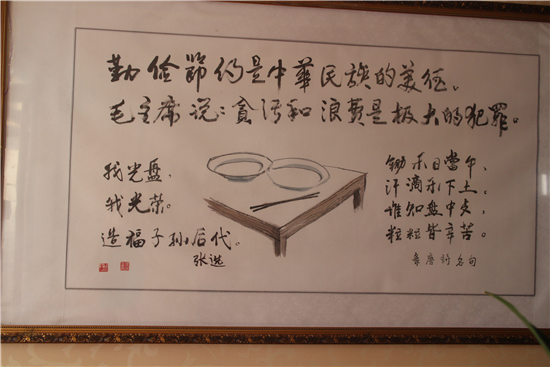 勤俭節约是中華民族的美德。
毛主席说：貪污和浪费是极大的犯罪。
我光盘、
我光荣。
造福子孙后代。
张选
锄禾日當午、
汗滴禾下土。
谁知盘中歺、
粒粒皆辛苦。
名句